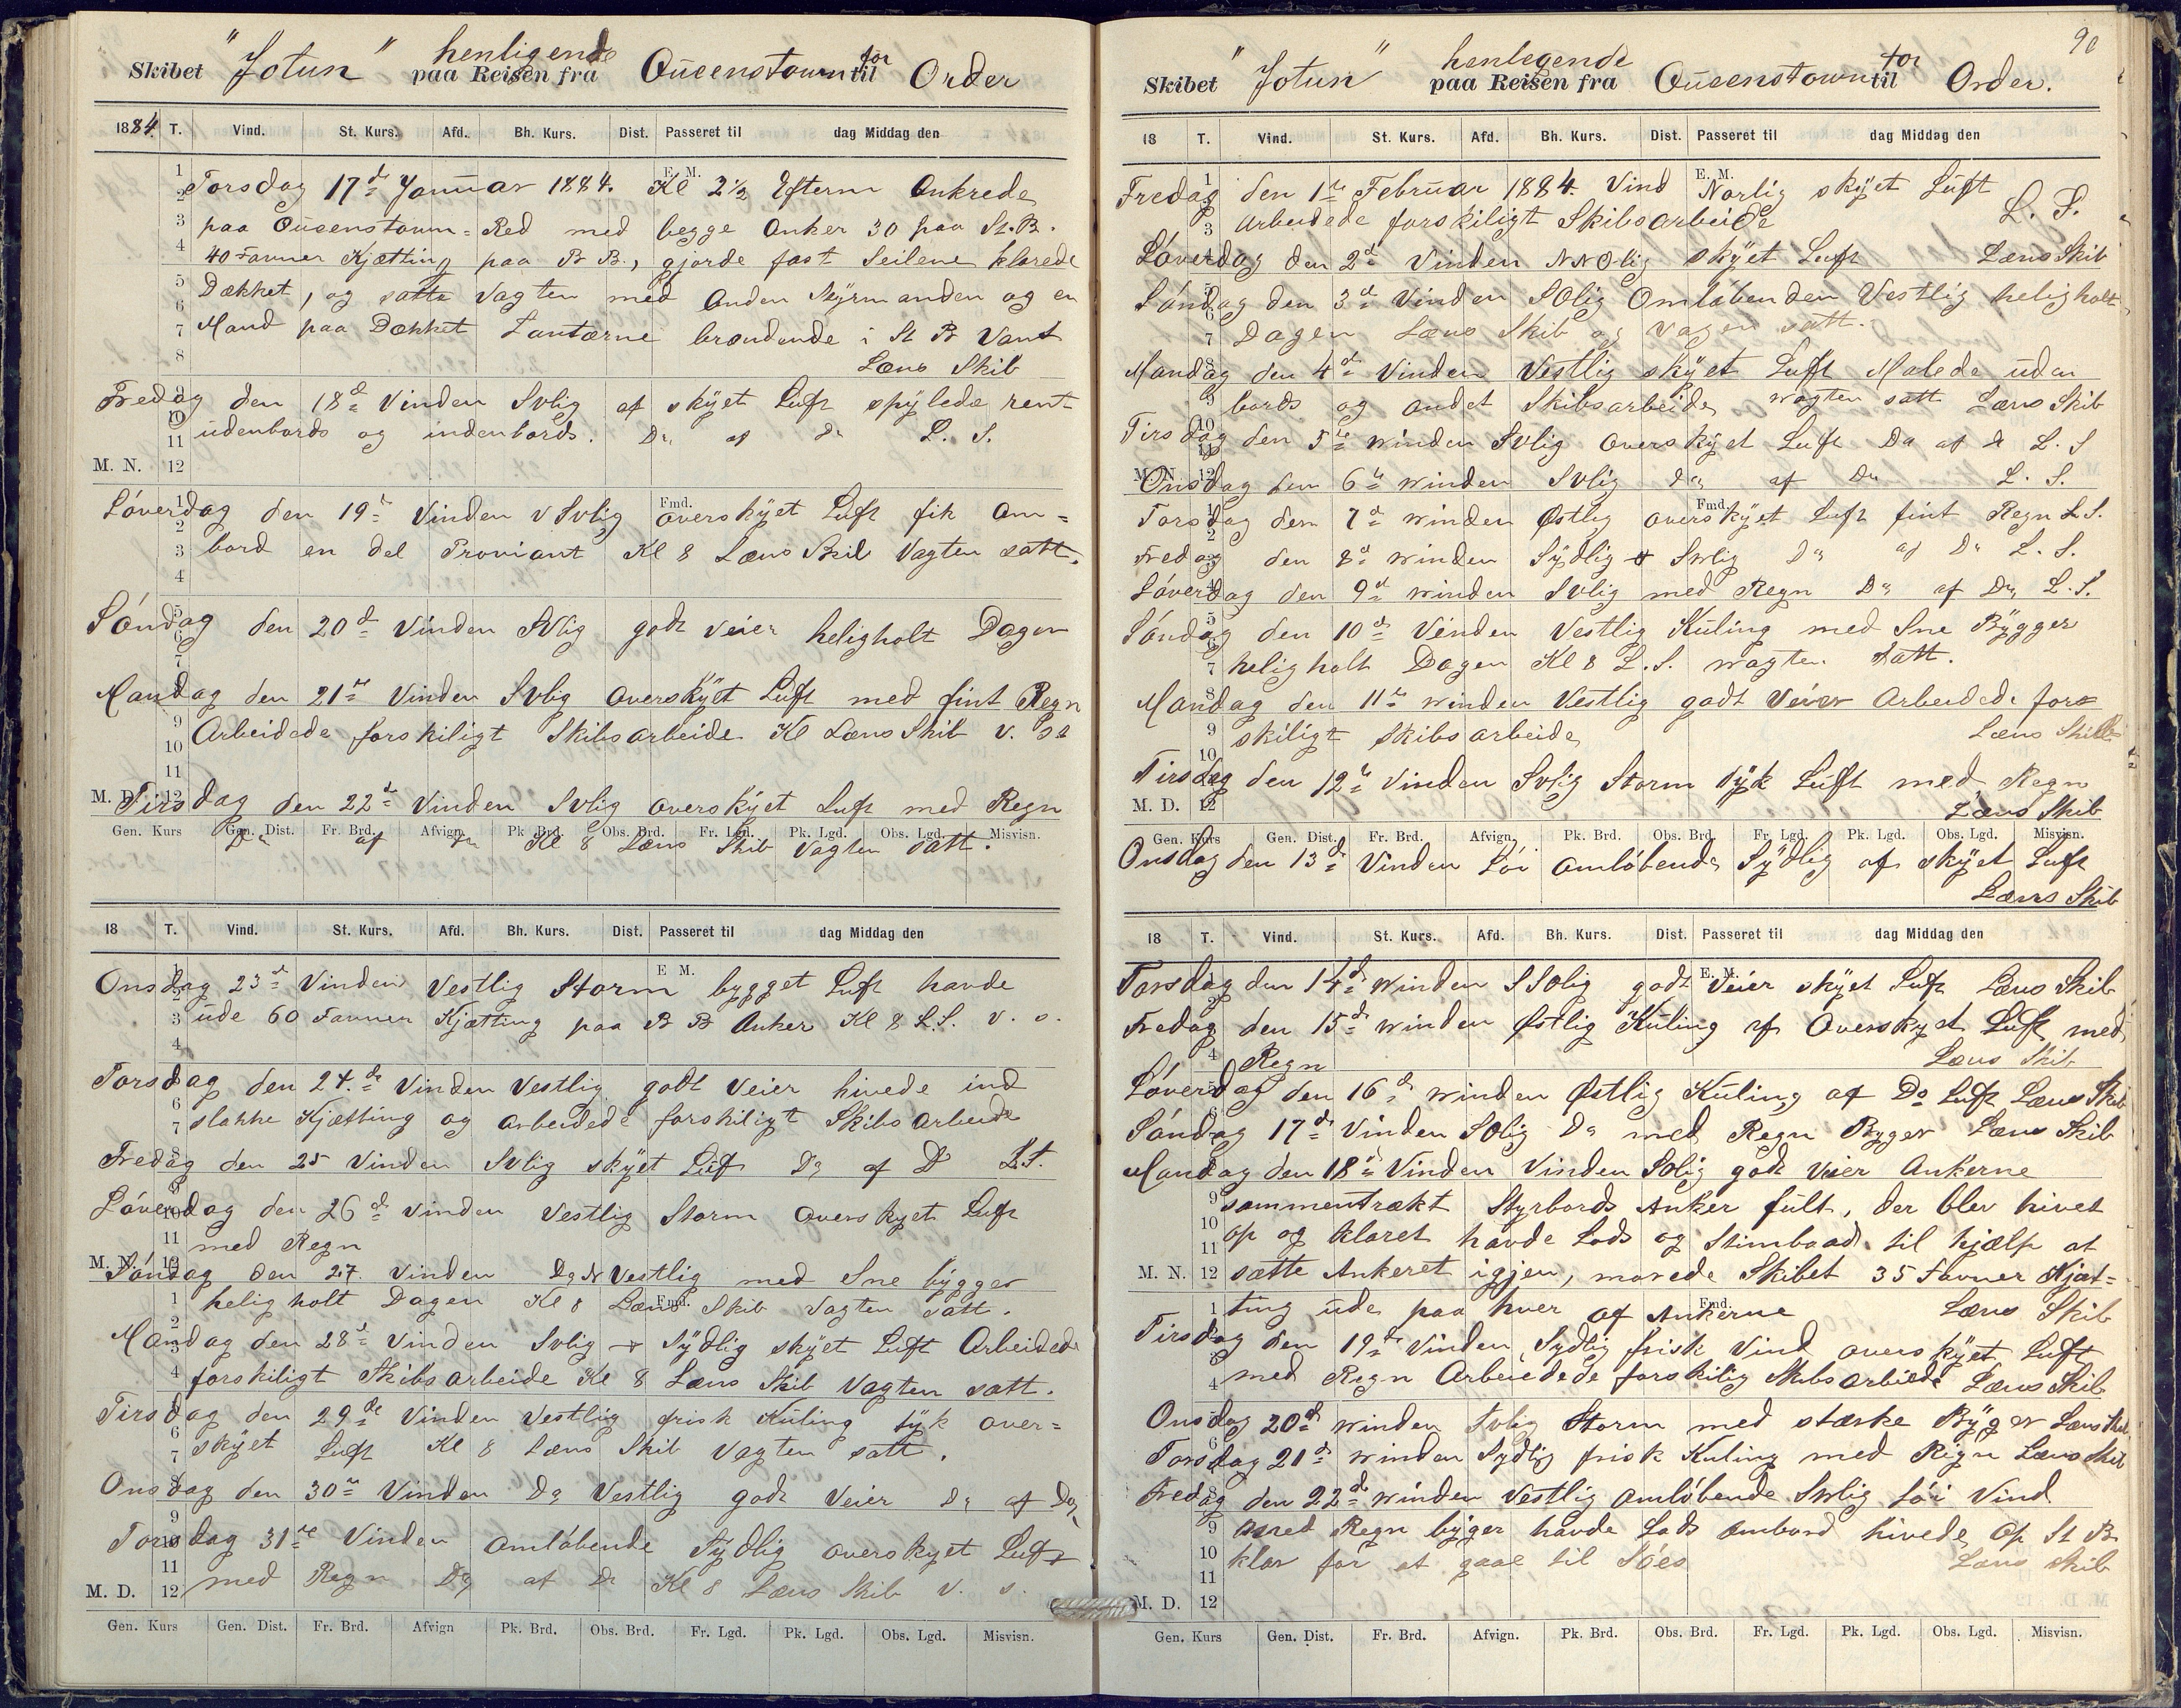 Skibet "Jotun" henligende paa Reisen fra Queenstown for til Order
1884. T. Vind. St. Kurs. Afd. Bh. Kurs. Dist. Passeret til dag Middag den
E. M.
Torsdag 17de Januar 1884. Kl 2½ Efterm Ankrede
paa Queenstown=Red med begge Anker 30 paa St.B.
40 Favner Kjætting paa B B., gjorde fast Seilene klarede
Dækket, og satte Vagten med Anden Styrmanden og en
Mand paa Dækket Lantærne brændende i St B Vant
Læns Skib
Fredag den 18de Vinden Svlig af skÿet Luft spÿlede rent
udenbords og indenbords. Do af do L. S.
M. N. 12
Löverdag den 19de Vinden VSvlig overskÿet Luft fik Om=
Fmd.
bord en del Proviant Kl 8 Læns Skib Vagten satt.
Söndag den 20de Vinden SVlig godt veier heligholt Dagen
Mandag den 21de Vinden Svlig overskÿet Luft med fint Regn
Arbeidede forskiligt Skibsarbeide Kl Læns Skib v. st
M. D. 12
Tirsdag den 22de Vinden Svlig overskÿet Luft med Regn
Gen. Kurs Gen. Dist. Fr. Brd. Afvign. Pk. Brd. Obs. Brd. Fr. Lgd. Pk. Lgd. Obs. Lgd. Misvisn.
Do af Do Kl 8 Læns Skib Vagten satt.
18 T. Vind. St. Kurs. Afd. Bh. Kurs. Dist. Passeret til dag Middag den
E. M.
Onsdag 23de Vinden Vestlig Storm bygget Luft havde
ude 60 Favner Kjætting paa B B Anker Kl 8 L.S. v. s.
Torsdag den 24.de Vinden Vestlig godt Veier hivede ind
slakke Kjætting og arbeidede forskiligt Skibsarbeide
Fredag den 25 Vinden Svlig skÿet Luft Do af D L.S.
Löverdag den 26de Vinden Vestlig Storm overskyet Luft
med Regn
M. N. 12
Söndag den 27. Vinden Do N Vestlig med Sne bÿgger
heligholt Dagen Kl 8 Læns Skib Vagten satt.
Fmd.
Mandag den 28de Vinden Svlig + Sÿdlig skÿet Luft Arbeidede
forskiligt Skibsarbeide Kl 8 Læns Skib Vagten satt.
Tirsdag den 29de Vinden Vestlig frisk Kuling tÿk over=
skÿet Luft Kl 8 Læns Skib Vagten satt.
Onsdag den 30te Vinden Do Vestlig godt Veier Do af Do
Torsdag 31te Vinden omlöbende Sÿdlig overskyet Luft
med Regn Do af Do Kl 8 Læns Skib v. s.
M. D. 12
Gen. Kurs Gen. Dist. Fr. Brd. Afvign Pk. Brd. Obs. Brd. Fr. Lgd. Pk. Lgd. Obs. Lgd. Misvisn.
90
Skibet "Jotun" henlegende paa Reisen fra Queenstown for til Order.
18 T. Vind. St. Kurs. Afd. Bh. Kurs. Dist. Passeret til dag Middag den
E. M.
Fredag den 1te Februar 1884. Vind Norlig skÿet Luft
arbeidede forskiligt Skibsarbeide L. S.
Löverdag den 2de Vinden NNOlig skÿet Luft Læns Skib
Söndag den 3de Vinden SOlig Omløbenden Vestlig heligholt
Dagen Læns Skib og Vagen satt.
Mandag den 4de Vinden Vestlig skÿet Luft Malede uden
bords og andet Skibsarbeide Wagten satt Læns Skib
Tirsdag den 5te Winden Svlig overskÿet Luft Do af d L. S
M. N. 12
Onsdag den 6te Winden Svlig do af Do L. S.
Fmd.
Torsdag den 7de Winden Østlig overskÿet Luft fint Regn L.S.
Fredag den 8de Winden Sÿdlig + Svlig Do af Do L. S.
Löverdag den 9de Winden Svlig med Regn Do af Do L.S.
Söndag den 10de Vinden Vestlig Kuling med Sne Bÿgger
heligholt Dagen Kl 8 L.S. Wagten satt.
Mandag den 11te Winden Vestlig godt Veier Arbeidede for=
skiligt Skibsarbeide Læns Skib
Tirsdag den 12te Vinden Svlig Storm tÿk Luft med Regn
M. D. 12
Læns Skib
Gen. Kurs Gen. Dist. Fr. Brd. Afvign. Pk. Brd. Obs. Brd. Fr. Lgd. Pk. Lgd. Obs. Lgd. Misvisn.
Onsdag den 13de Vinden Löi omlöbende Sÿdlig af skÿet Luft
Læns Skib
18 T. Vind. St. Kurs. Afd. Bh. Kurs. Dist. Passeret til dag Middag den
E. M.
Torsdag den 14de Winden SSOlig godt Veier skÿet Luft Læns Skib
Fredag den 15de Winden Østlig Kuling af Overskyet Luft med
Regn Læns Skib
Löverdag den 16de Winden Østlig Kuling af Do Luft Læns Skib
Söndag 17de Vinden SOlig Do med Regn Byger Læns Skib
Mandag den 18de Vinden Vinden SOlig godt Veier Ankerne
sammentrækt Styrbords Anker fült, der blev hivet
op og klaret havde Lods og Stimbaad til hjælp at
M. N. 12 sætte Ankeret igjen, morede Skibet 35 Favner Kjæt=
ting ude paa hver af Ankerne Læns Skib
Fmd.
Tirsdag den 19de Vinden Sydlig frisk Vind overskÿet Luft
med Regn Arbeidede forskilig Skibsarbiede Læns Skib
Onsdag 20de Winden Svlig Storm med stærke Bÿger Læns Skib
Torsdag 21de Winden Sydlig frisk Kuling med Regn Læns Skib
Fredag den 22de Winden Vestlig omlöbende Svlig Löi Vind
med Regn byger havde Lods Ombord hivede Op St B
klar for at gaae til Söes Læns Skib
M. D. 12
Gen. Kurs Gen. Dist. Fr. Brd. Afvign. Pk. Brd. Obs. Brd. Fr. Lgd. Pk. Lgd. Obs. Lgd. Misvisn.